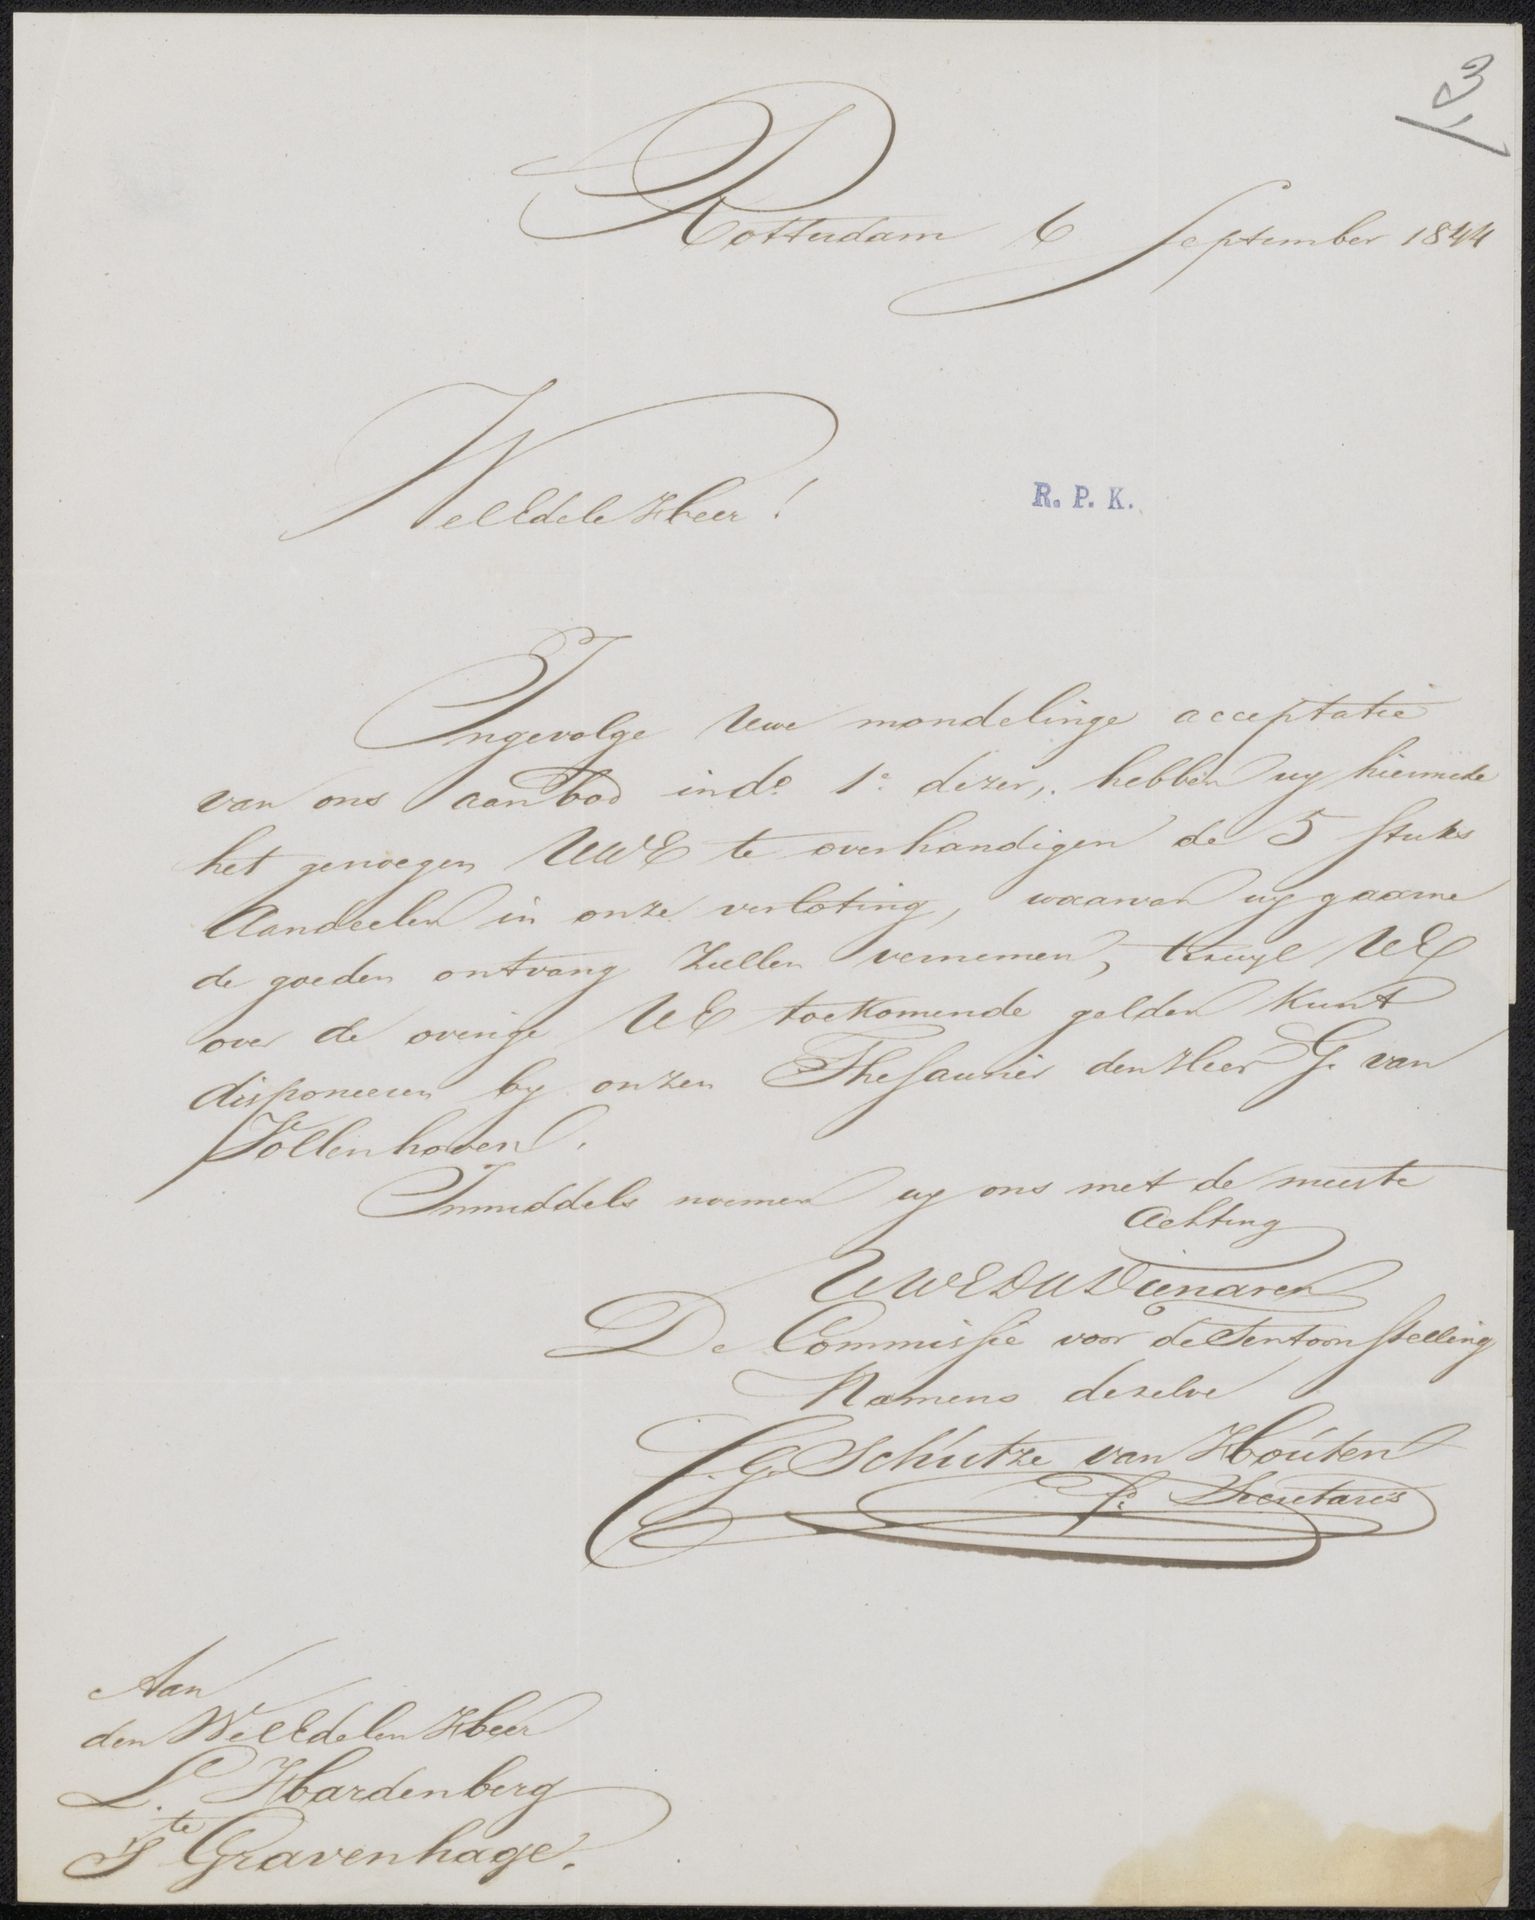 Rotterdam 6 September 1844
WelEdele Heer!
R. P. K.
Ingevolge Uwe mondelinge acceptatie
van ons aanbod in do 1e dezer, hebben wy hiermede
het genoegen UWE te overhandigen de 5 stuks
Aandeelen in onze verloting, waarvan wy gaarne
de goeden ontvang zullen vernemen, terwyl UE
over de overige UE toekomende gelden kunt
disponeeren by onzen Thesaurier den Heer G. van
Vollenhoven.
Inmiddels noemen wy ons met de meeste
Achting
UWEDW Dienaren
De Commissie voor de Tentoonstelling
Namens dezelve
G. Schütze van Houten
Secretaris
Aan
den WelEdelen Heer
L. Hardenberg
te
'S Gravenhage.